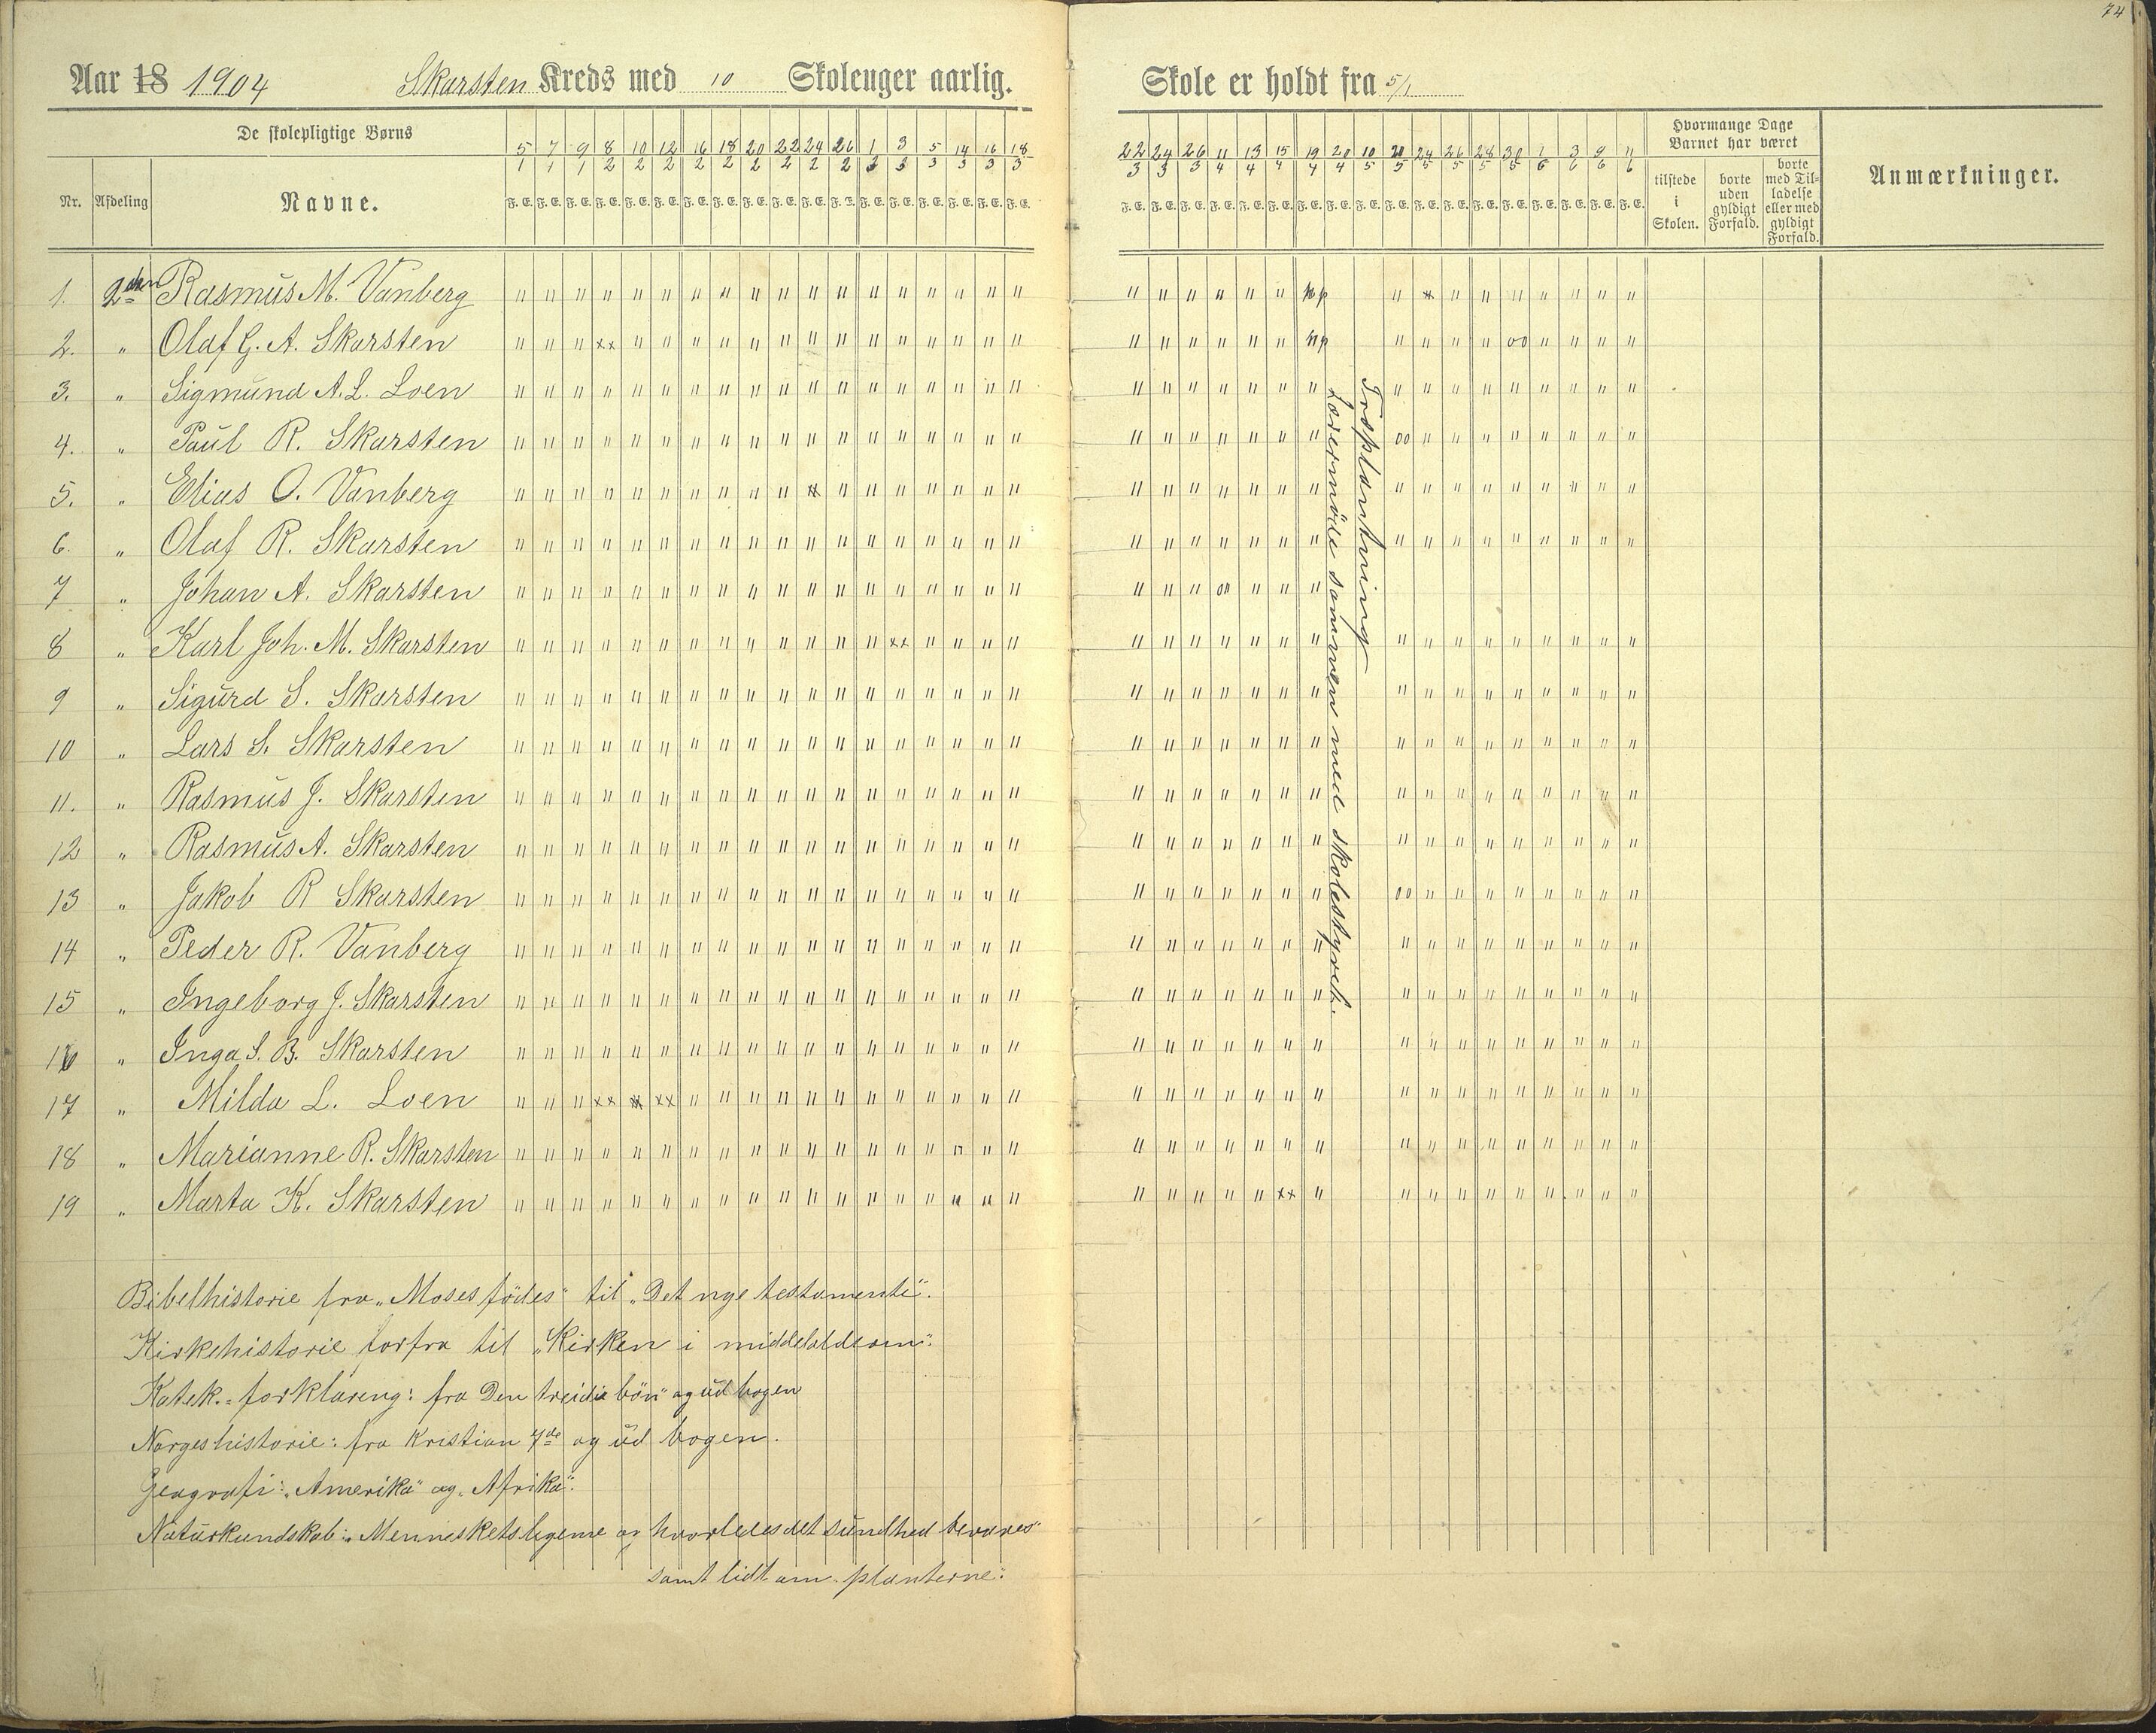 74
Aar 18 1904 Skarsten Kreds med 10 Skoleuger aarlig. Skole er holdt fra 5/1
De skolepligtige Børns
Nr. Afdeling Navne.
5/1 7/1 9/1 8/2 10/2 12/2 16/2 18/2 20/2 22/2 24/2 26/2 1/3 3/3 5/3 14/3 16/3 18/3
F. E. F. E. F. E. F. E. F. E. F. E. F. E. F. E. F. E. F. E. F. E. F. E. F. E. F. E. F. E. F. E. F. E. F. E.
22/3 24/3 26/3 11/4 13/4 15/4 19/4 20/4 10/5 20/5 24/5 26/5 28/5 30/5 1/6 3/6 9/6 11/6
F. E. F. E. F. E. F. E. F. E. F. E. F. E. F. E. F. E. F. E. F. E. F. E. F. E. F. E. F. E. F. E. F. E. F. E.
Hvormange Dage
Barnet har været
tilstede
i
Skolen.
borte
uden
gyldigt
Forfald.
borte
med Til-
ladelse
eller med
gyldigt
Forfald.
Anmærkninger.
1. 2den Rasmus M. Vanberg
2. " Olaf G. A. Skarsten
3. " Sigmund A. L. Loen
4. " Paul R. Skarsten
5. " Elias O. Vanberg
6. " Olaf R. Skarsten
7 " Johan A. Skarsten
8 " Karl Joh. M. Skarsten
9 " Sigurd S. Skarsten
10 " Lars S. Skarsten
11. " Rasmus J. Skarsten
12 " Rasmus A. Skarsten
13 " Jakob R Skarsten
14 " Peder R. Vanberg
15 " Ingeborg J. Skarsten
16 " Inga S. B. Skarsten
17 " Milda L. Loen
18 " Marianne R. Skarsten
19 " Marta K. Skarsten
Lærermöde sammen med skolestyret.
Træplantning
Bibelhistorie fra „Moses födes" til „Det nye testamente".
Kirkehistorie forfra til „Kirken i middelalderen".
Katek.=forklaring: fra Den treidie bön" og ud bogen
Norgeshistorie: fra Kristian 7de og ud bogen.
Geografi: „Amerika" og „Afrika".
Naturkundskab: „Menneskets legeme og hvorledes det sundhed bevares"
samt lidt om „planterne".